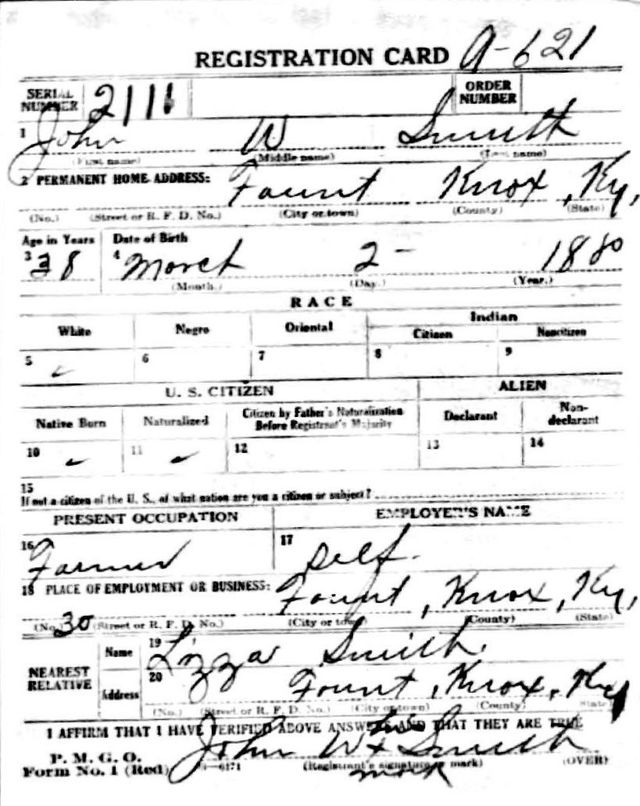 REGISTRATION CARD A-621
SERIAL NUMBER 2111 ORDER NUMBER
1 John W Smith
(First name) (Middle name) (Last name)
2 PERMANENT HOME ADDRESS: Fount Knox, Ky,
(No.) (Street or R. F. D. No.) (City or town) (County) (State)
Age in Years Date of Birth
3 38 4 March 2- 1880
(Month.) (Day.) (Year.)
RACE
White Negro Oriental Indian
Citizen Noncitizen
5 ✓ 6 7 8 9
U. S. CITIZEN ALIEN
Native Born Naturalized Citizen by Father's Naturalization Before Registrant's Majority Declarant Non-declarant
10 ✓ 11 ✓ 12 13 14
15
If not a citizen of the U. S., of what nation are you a citizen or subject?
PRESENT OCCUPATION EMPLOYER'S NAME
16 Farmer 17 Self.
18 PLACE OF EMPLOYMENT OR BUSINESS: Fount, Knox, Ky,
(No.) 30 (Street or R. F. D. No.) (City or town) (County) (State)
NEAREST RELATIVE Name 19 Lizza Smith.
Address 20 Fount, Knox, Ky
(No.) (Street or R. F. D. No.) (City or town) (County) (State)
I AFFIRM THAT I HAVE VERIFIED ABOVE ANSWERS AND THAT THEY ARE TRUE
P. M. G. O.
Form No. 1 (Red) John W x Smith
(Registrant's signature or mark) (OVER)
mark